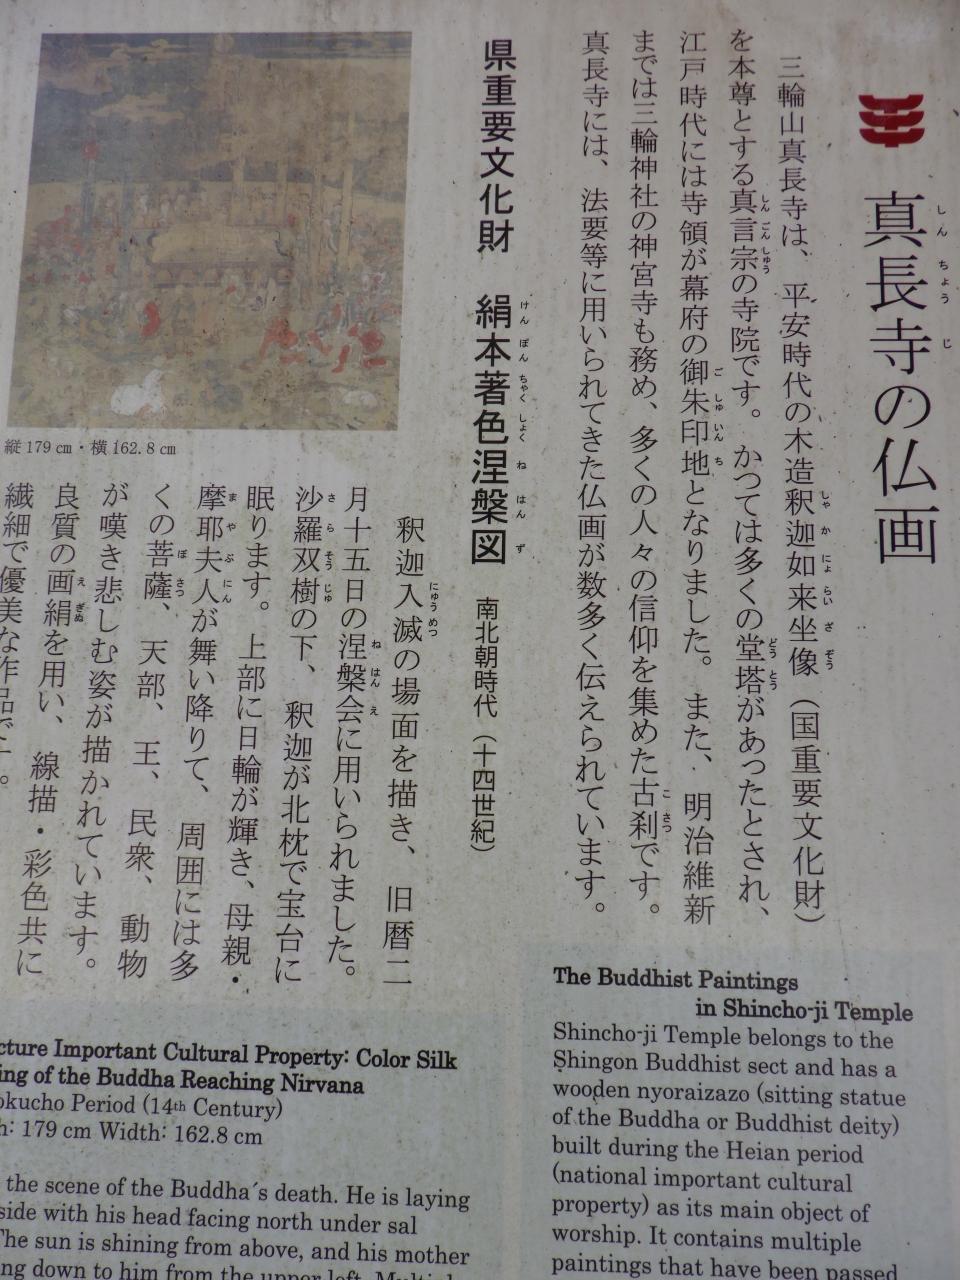 真長寺の仏画
しんちょうじ
三輪山真長寺は、平安時代の木造釈迦如来坐像（国重要文化財）
しゃかにょらいざぞう
を本尊とする真言宗の寺院です。かつては多くの堂塔があったとされ、
しんごんしゅう どうとう
江戸時代には寺領が幕府の御朱印地となりました。また、明治維新
ごしゅいんち
までは三輪神社の神宮寺も務め、多くの人々の信仰を集めた古刹です。
こさつ
真長寺には、法要等に用いられてきた仏画が数多く伝えられています。
県重要文化財 絹本著色涅槃図 南北朝時代（十四世紀）
けんぽんちゃくしょくねはんず
縦179㎝・横162.8㎝
釈迦入滅の場面を描き、旧暦二
にゅうめつ
月十五日の涅槃会に用いられました。
ねはんえ
沙羅双樹の下、釈迦が北枕で宝台に
さらそうじゅ
眠ります。上部に日輪が輝き、母親・
摩耶夫人が舞い降りて、周囲には多
まやぶにん
くの菩薩、天部、王、民衆、動物
ぼさつ
が嘆き悲しむ姿が描かれています。
良質の画絹を用い、線描・彩色共に
えぎぬ
繊細で優美な作品です。
The Buddhist Paintings
in Shincho-ji Temple
Shincho-ji Temple belongs to the
Shingon Buddhist sect and has a
wooden nyoraizazo (sitting statue
of the Buddha or Buddhist deity)
built during the Heian period
(national important cultural
property) as its main object of
worship. It contains multiple
paintings that have been passed
cture Important Cultural Property: Color Silk
ing of the Buddha Reaching Nirvana
okucho Period (14th Century)
h: 179 cm Width: 162.8 cm
the scene of the Buddha's death. He is laying
side with his head facing north under sal
The sun is shining from above, and his mother
ng down to him from the upper left.